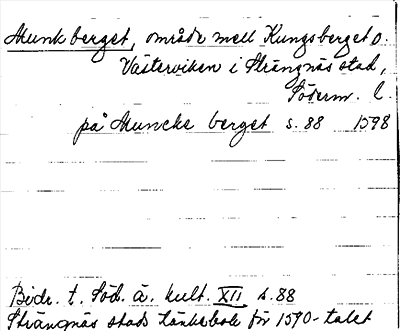 Munkberget, område mell Kungsberget o.
Västerviken i Strängnäs stad,
Söderm. l.
på Muncke berget s. 88 1598
Bidr. t. Söd. ä. kult. XII s. 88
Strängnäs stads tänkebok för 1590-talet